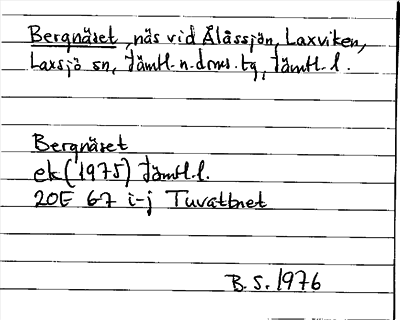 Bergnäset, näs vid Ålåssjön, Laxviken,
Laxsjö sn, Jämtl. n. doms. tg, Jämtl. l.
Bergnäset
ek (1975) Jämtl. l.
20E 67 i-j Tuvattnet
B. S. 1976